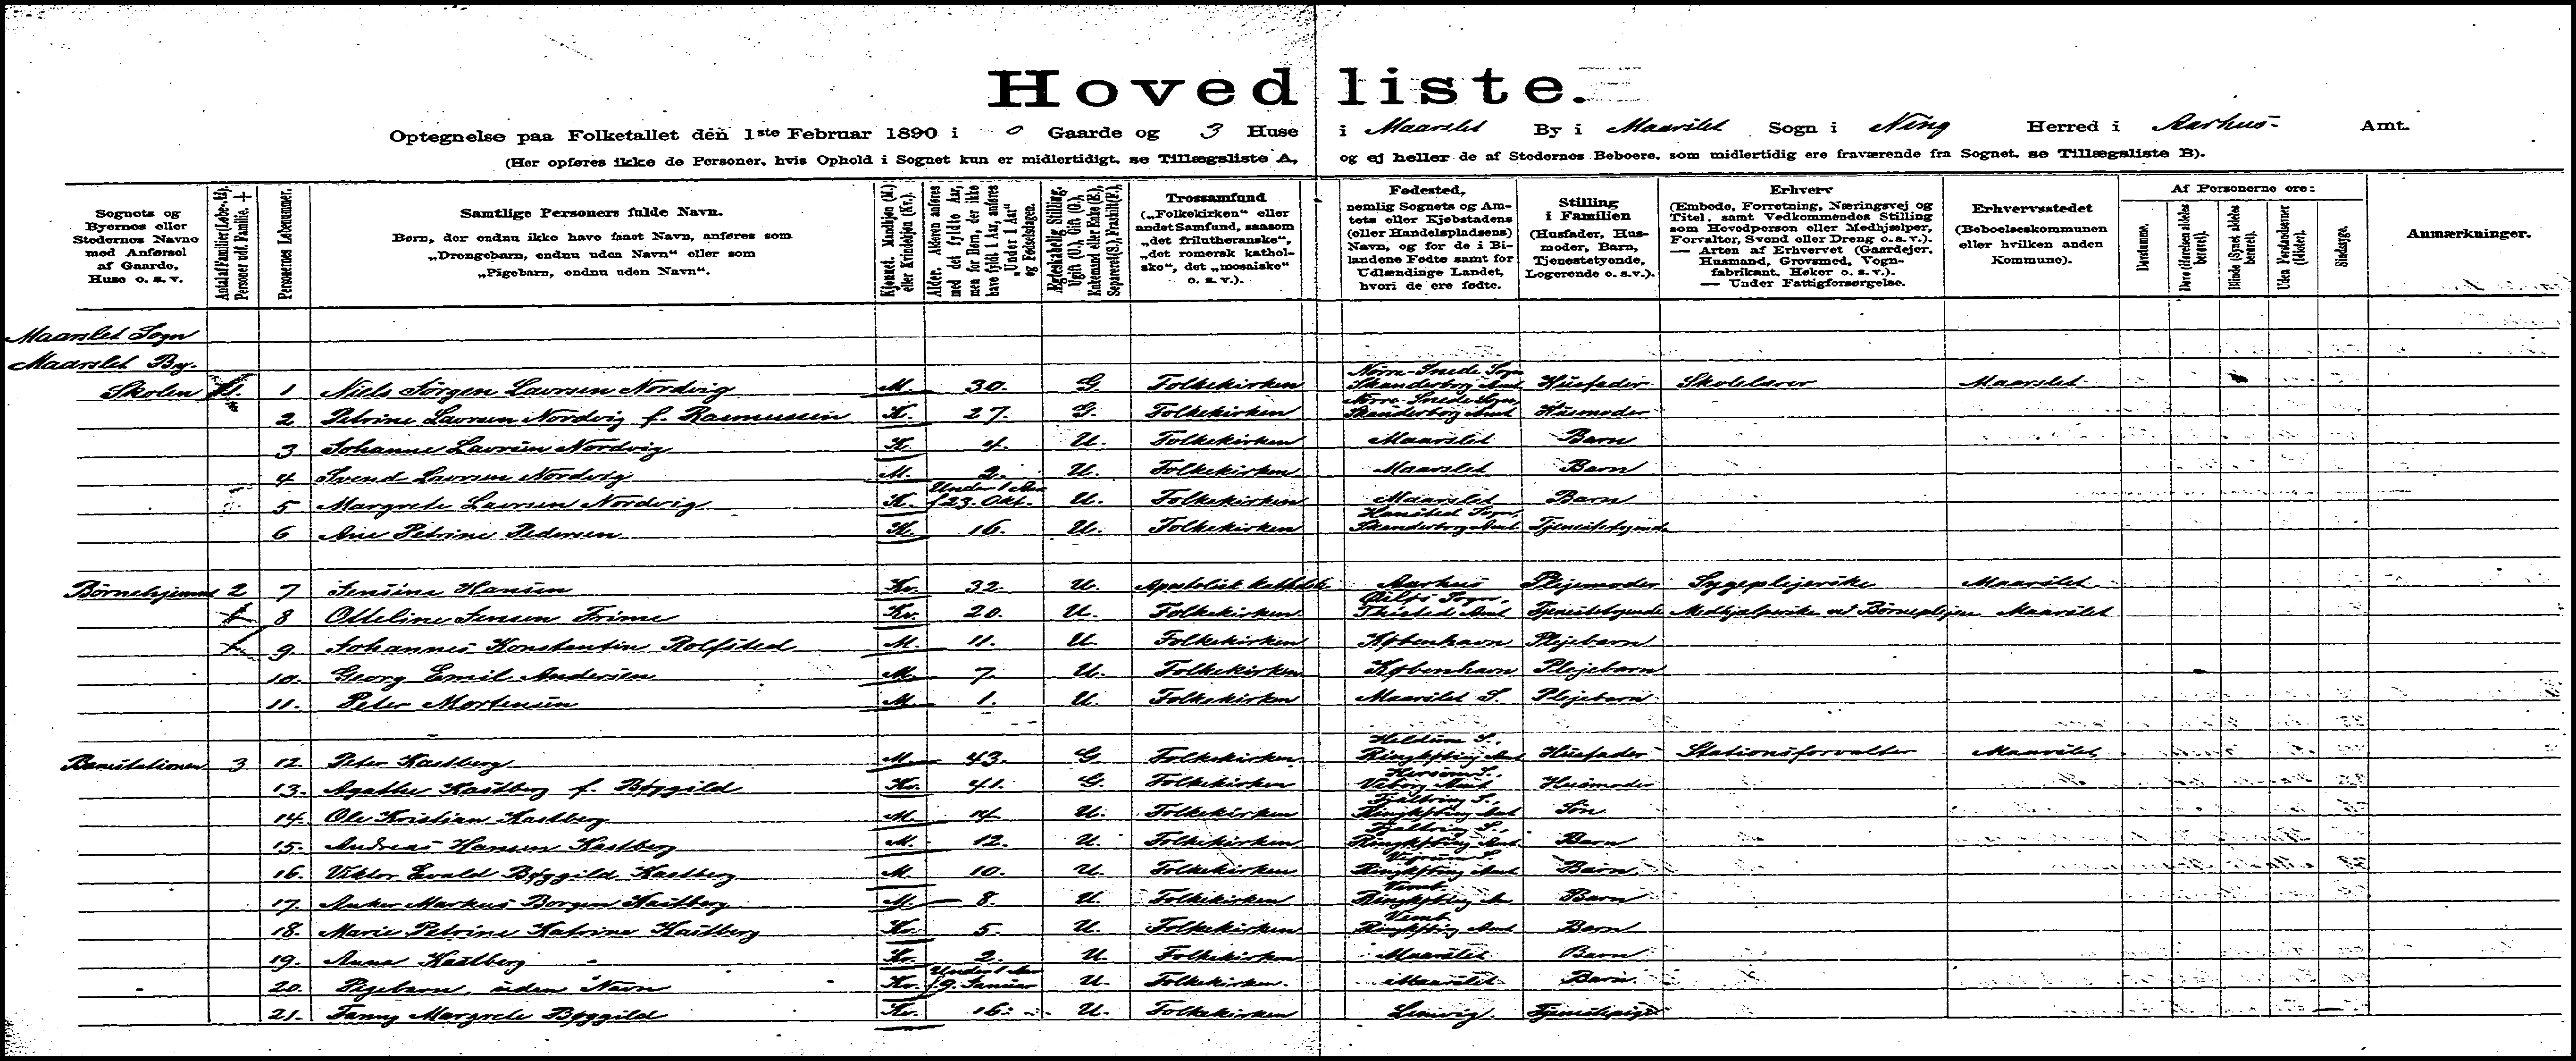 Hovedliste.
Optegnelse paa Folketallet den 1ste Februar 1890 i 0 Gaarde og 3 Huse i Maarslet By i Maarslet Sogn i Ning Herred i Aarhus Amt.
(Her opføres ikke de Personer, hvis Ophold i Sognet kun er midlertidigt, se Tillægsliste A, og ej heller de af Stedernes Beboere, som midlertidig ere fraværende fra Sognet, se Tillægsliste B).
Sognets og Byernes eller Stedernes Navne med Anførsel af Gaarde, Huse o. s. v.
Antal af Familier (Løbe-Nr.), Personer udf. Familie, +
Personernes Løbenummer.
Samtlige Personers fulde Navn.
Børn, der endnu ikke have faaet Navn, anføres som
„Drengebarn, endnu uden Navn“ eller som
„Pigebarn, endnu uden Navn“.
Kjønnet. Mandkjøn (M.) eller Kvindekjøn (Kv.).
Alder. Alderen anføres med det fyldte Aar, men for Børn, der ikke have fyldt 1 Aar, anføres „Under 1 Aar“ og Fødselsdagen.
Ægteskabelig Stilling. Ugift (U.), Gift (G.), Enkemand eller Enke (E.), Separeret (S.), Fraskilt (F.).
Trossamfund („Folkekirken“ eller andet Samfund, saasom „det frilutheranske“, „det romersk katholske“, det „mosaiske“ o. s. v.).
Fødested, nemlig Sognets og Amtets eller Kjøbstadens (eller Handelspladsens) Navn, og for de i Bilandene Fødte samt for Udlændinge Landet, hvori de ere fødte.
Stilling i Familien (Husfader, Husmoder, Barn, Tjenestetyende, Logerende o. s. v.).
Erhverv (Embede, Forretning, Næringsvej og Titel, samt Vedkommendes Stilling som Hovedperson eller Medhjælper, Forvalter, Svend eller Dreng o. s. v.). — Arten af Erhvervet (Gaardejer, Husmand, Grovsmed, Vognfabrikant, Høker o. s. v.). — Under Fattigforsørgelse.
Erhvervsstedet (Beboelseskommunen eller hvilken anden Kommune).
Af Personerne ere:
Døvstumme.
Døve (Hørelsen aldeles berøvet).
Blinde (Synet aldeles berøvet).
Uden Forstandsevner (Idioter).
Sindssyge.
Anmærkninger.
Maarslet Sogn
Maarslet By.
Skolen 1. 1 Niels Jörgen Laursen Nordvig M. 30. G. Folkekirken Nörre-Snede Sogn Skanderborg Amt Husfader Skolelærer Maarslet
2 Petrine Laursen Nordvig f. Rasmussen K. 27. G. Folkekirken Nörre-Snede Sogn, Skanderborg Amt Husmoder
3 Johanne Laursen Nordvig K. 4. U. Folkekirken Maarslet Barn
4 Svend Laursen Nordvig M. 2. U. Folkekirken Maarslet Barn
5 Margrete Laursen Nordvig K. Under 1 Aar f. 23. Okt. U. Folkekirken Maarslet Barn
6 Ane Petrine Pedersen K. 16. U. Folkekirken Hansted Sogn, Skanderborg Amt Tjenestetyende
Börnehjemmet 2 7 Jensine Hansen Kv. 32. U. Apostolisk katholske Aarhus Plejemoder Sygeplejerske Maarslet
8 Otteline Jensen Prime Kv. 20. U. Folkekirken Sogn, Thisted Amt Tjenestetyende Medhjælperske ved Börneplejen Maarslet
9 Johannes Konstantin Rolfsted M. 11. U. Folkekirken København Plejebarn
10. Georg Emil Andersen M. 7. U. Folkekirken København Plejebarn
11. Peter Mortensen M. 1. U. Folkekirken Maarslet S. Plejebarn
Banestationen 3 12. Peter Kastberg M. 43. G. Folkekirken Heldum S., Ringkøbing Amt Husfader Stationsforvalter Maarslet
13. Agathe Kastberg f. Bøggild Kv. 41. G. Folkekirken Hersom S., Viborg Amt Husmoder
14. Ole Kristian Kastberg M. 14. U. Folkekirken Fjaltring S., Ringkøbing Amt Søn
15. Andreas Hansen Kastberg M. 12. U. Folkekirken Fjaltring S., Ringkøbing Amt. Barn
16. Viktor Evald Bøggild Kastberg M. 10. U. Folkekirken Vejrum S. Ringkøbing Amt Barn
17. Anker Markus Borgen Kastberg M. 8. U. Folkekirken Vemb Ringkøbing A Barn
18. Marie Petrine Katrine Kastberg Kv. 5. U. Folkekirken Vemb Ringkøbing Amt Barn
19. Anna Kastberg Kv. 2. U. Folkekirken Maarslet Barn
20. Pigebarn, uden Navn Kv. Under 1 Aar f. 9. Januar U. Folkekirken. Maarslet Barn.
21. Fanny Margrete Bøggild Kv. 16. U. Folkekirken Lemvig. Tjenestepige